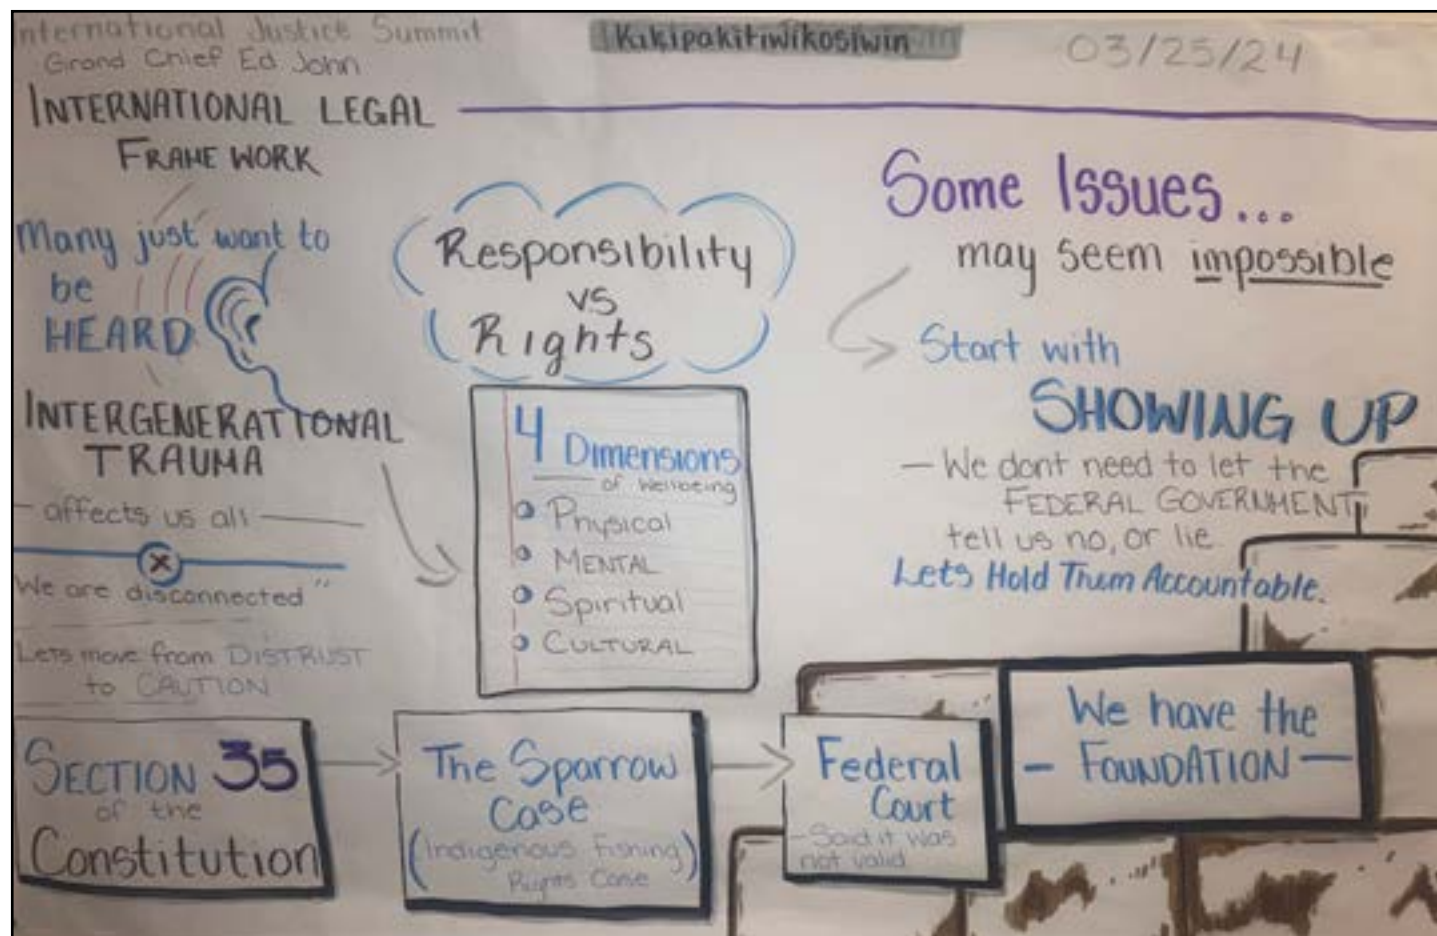 International Justice Summit
Grand Chief Ed John
Kikipakitiwikosiwin
03/25/24
INTERNATIONAL LEGAL
FRAME WORK
Many just want to
be
HEARD
INTERGENERATIONAL
TRAUMA
affects us all
We are disconnected"
Lets move from DISTRUST
to CAUTION
Responsibility
vs
Rights
4 Dimensions
of wellbeing
Physical
MENTAL
Spiritual
CULTURAL
Some Issues...
may seem impossible
Start with
SHOWING UP
- We dont need to let the
FEDERAL GOVERNMENT
tell us no, or lie
Lets Hold Them Accountable.
SECTION 35
of the
Constitution
The Sparrow
Case
(Indigenous Fishing)
Rights Case
Federal
Court
- Said it was
not valid
We have the
- FOUNDATION -